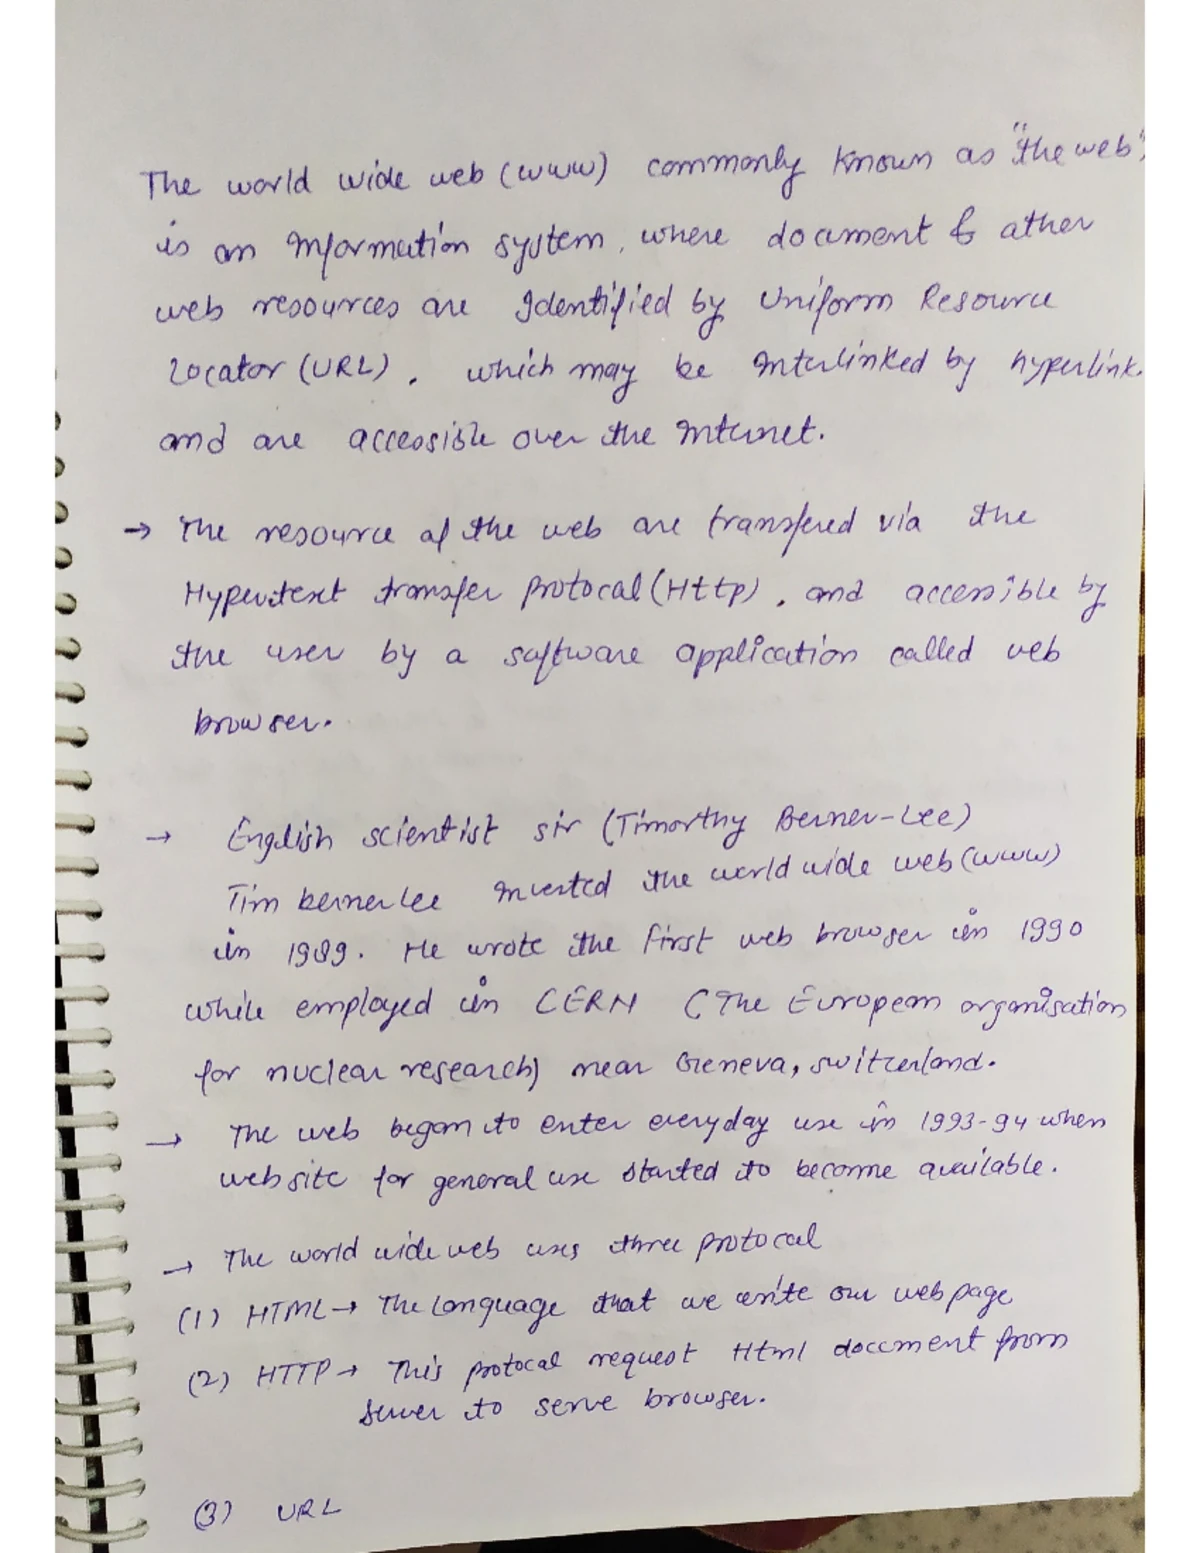 The world wide web (www) commonly known as "the web",
is an Information system, where document & other
web resources are Identified by Uniform Resource
locator (URL), which may be Interlinked by hyperlink.
and are accessible over the Internet.
→ The resource of the web are transfered via the
Hypertext transfer protocal (Http), and accessible by
the user by a software application called web
browser.
→ English scientist sir (Timorthy Berner-Lee)
Tim berner lee Invented the world wide web (www)
in 1989. He wrote the first web browser in 1990
while employed in CERN (The European organisation
for nuclear research) near Geneva, switzerland.
→ The web began to enter everyday use in 1993-94 when
website for general use started to become available.
→ The world wide web uses three protocal
(1) HTML → The language that we write our web page
(2) HTTP → This protocal request Html doccment from
server to serve browser.
(3) URL